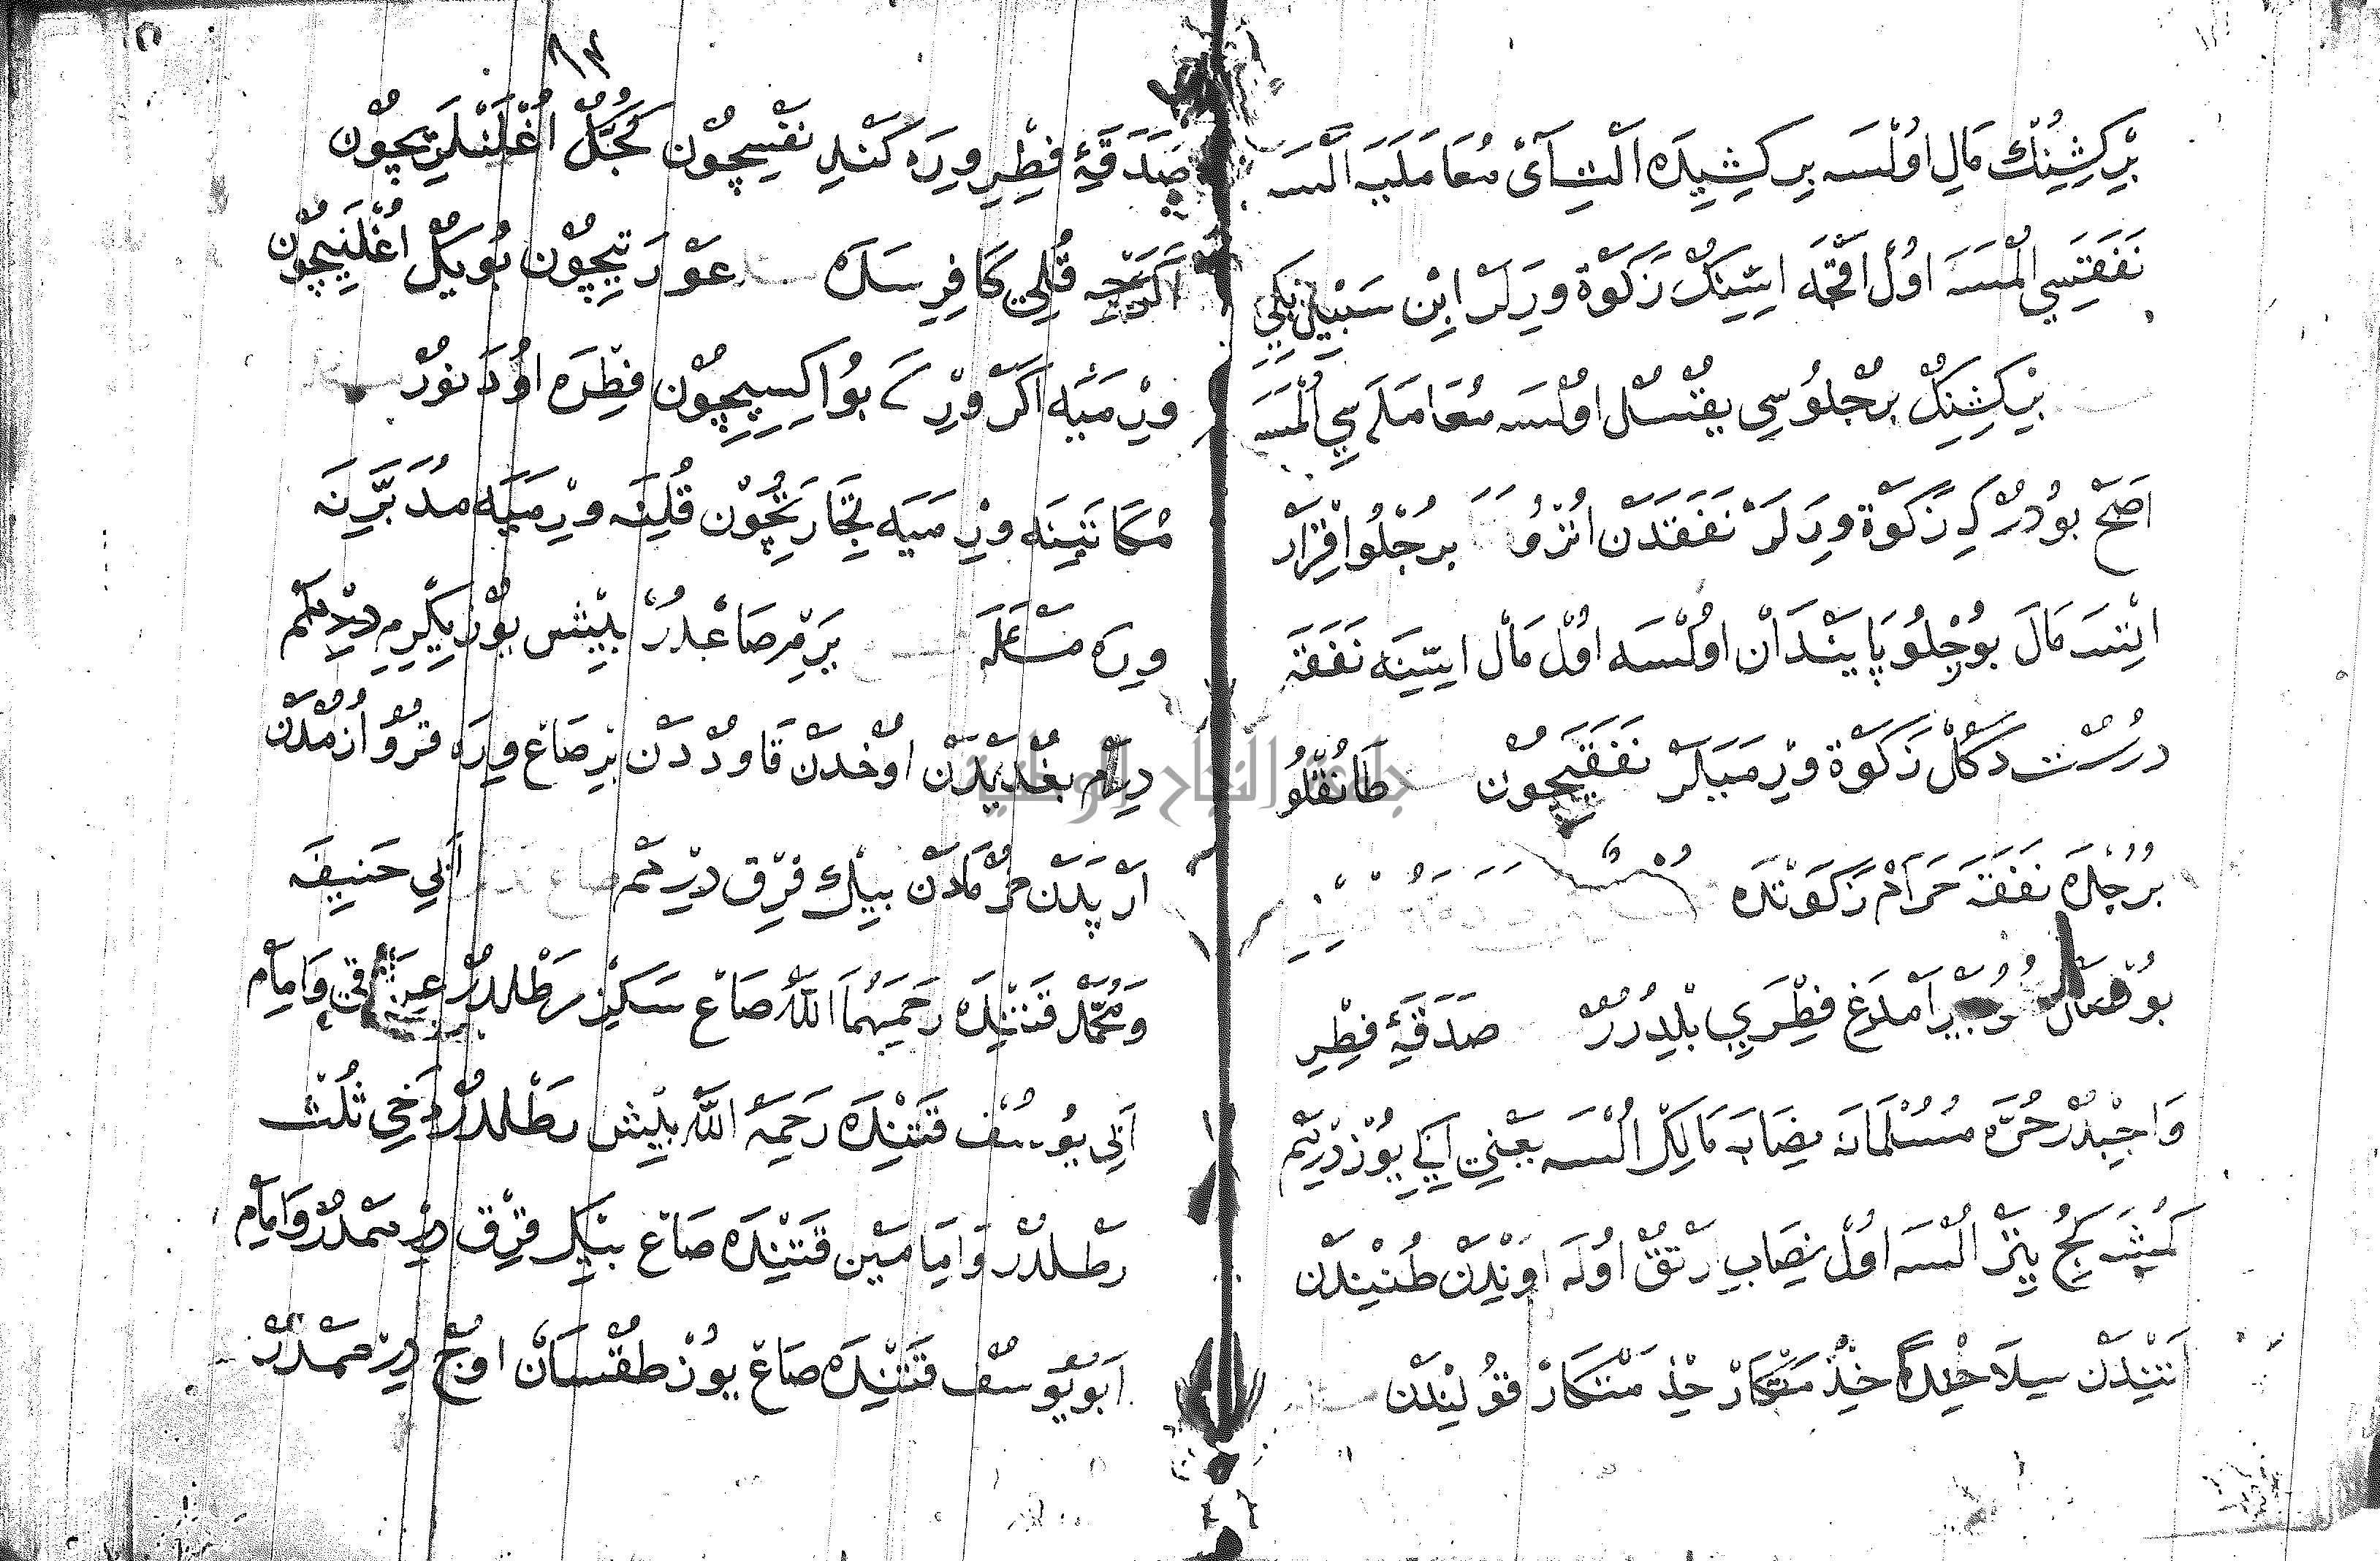 بِرْ كِشِنِكْ مَالِ اوُلْسَه بِر كِشِيدَه اَلْتِ آئْ مُعَامَلَيَه اَلْسَه
نَفَقَتِسِي الْمَسَه اوُلْ اَقْچَه اسِّينِكْ زَكَوةْ وِرَلَرْ اِبْنِ سَبِيلْ بِكِي
بِرْ كِشِنِكْ بُرْجْلُوسِي يُقْسُلْ اوُلْسَه مُعَامَلَه سِي اَلْمَسَه
اَصَحّ بُودُرْ كِه زَكَوةْ وِرَلَرْ نَفَقَدَنْ اُتْرُو بُرْجْلُو اِقْرَارْ
اِتْسَه مَالَ بُوجْلُو پَايَنْدَانْ اوُلْسَه اوُلْ مَالْ اسِّينِه نَفَقَه
دُرُسْت دَكُلْ زَكَوةْ وِرْمَيَلَرْ نَفَقَيچُونْ طَانُقْلُو
بُرْجْدَه نَفَقَه حَرَامْ زَكَوتْدَه
بُو فَصْلْ بَيْرَامْلَرِغْ فِطْرَيِ بِلْدُرُرْ صَدَقَهٔ فِطِرِ
وَاجِبْدُرْ حُرَّه مُسُلْمَانَه نِصَابَه مَالِكْ اُلْسَه يَعْنِي اِيكِي يُوزْ دِرْهَم
كُمُشَه كُجِ يِتَرْ اُلْسَه اوُلْ نِصَابِ اَرْتُقْ اوُلَه اَوِنْدِنْ طُنِنْدَنْ
اَتِنْدَنْ سِيلَاحِنْدَنْ خِذْمَتْكَارْ خِذْمَتْكَارْ قُولِنْدَنْ
٦٣
صَدَقَهٔ فِطِرِ وِرَه كَنْدِ نَفْسِيچُونْ كُجُكْ اُغْلَنْلَرِيچُونْ
اَكَرْچِه قُلِي كَافِرِسَه دَه عَوْرَتِيچُونْ بُويُكْ اُغْلَنِيچُونْ
وِرْمَيَه اَكَرْ وِرْسَه بُو اِكِسِيچُونْ فِطْرَه اوُدَنُورْ
مُكَاتَبِنَه وِرْمَيَه تِجَارَتِچُونْ قُلِنَه وِرْمَيَه مُدَبَّرِنَه
وِرَه مَسْئَلَه يَرِمْ صَاعْدُرْ بِيشْ يُوزْ يِكِرْمِ دِرْهَم
دِرَمْ بُغْدَيْدَنْ اوُخُدَنْ قَاوُدْدَنْ بِرْ صَاعْ وِرَه قُرُو اُزُمْدَنْ
اَرْپَدَنْ خُرْمَادَنْ بِيكْ قِرْقْ دِرْهَم اَبِي حَنِيفَه
وَمُحَمَّدْ قَتِنْدَه رَحِمَهُمَا اللّٰهُ صَاعْ سَكِزْ رَطْلْدُرْ عِرَاقِي وَامَامْ
اَبِي يُوسُفْ قَتِنْدَه رَحِمَهُ اللّٰهُ بِيشْ رَطْلْدُرْ دَخِي ثُلُثْ
رَطْلْدُرْ وَامَامَيْنِ قَتِنْدَه صَاعْ بِيكْ قِرْقْ دِرْهَمْدُرْ وَامَامْ
اَبُو يُوسُفْ قَتِنْدَه صَاعْ يُوزْ طُقْسَانْ اوُچْ دِرْهَمْدُرْ
جامعة النجاح الوطنية